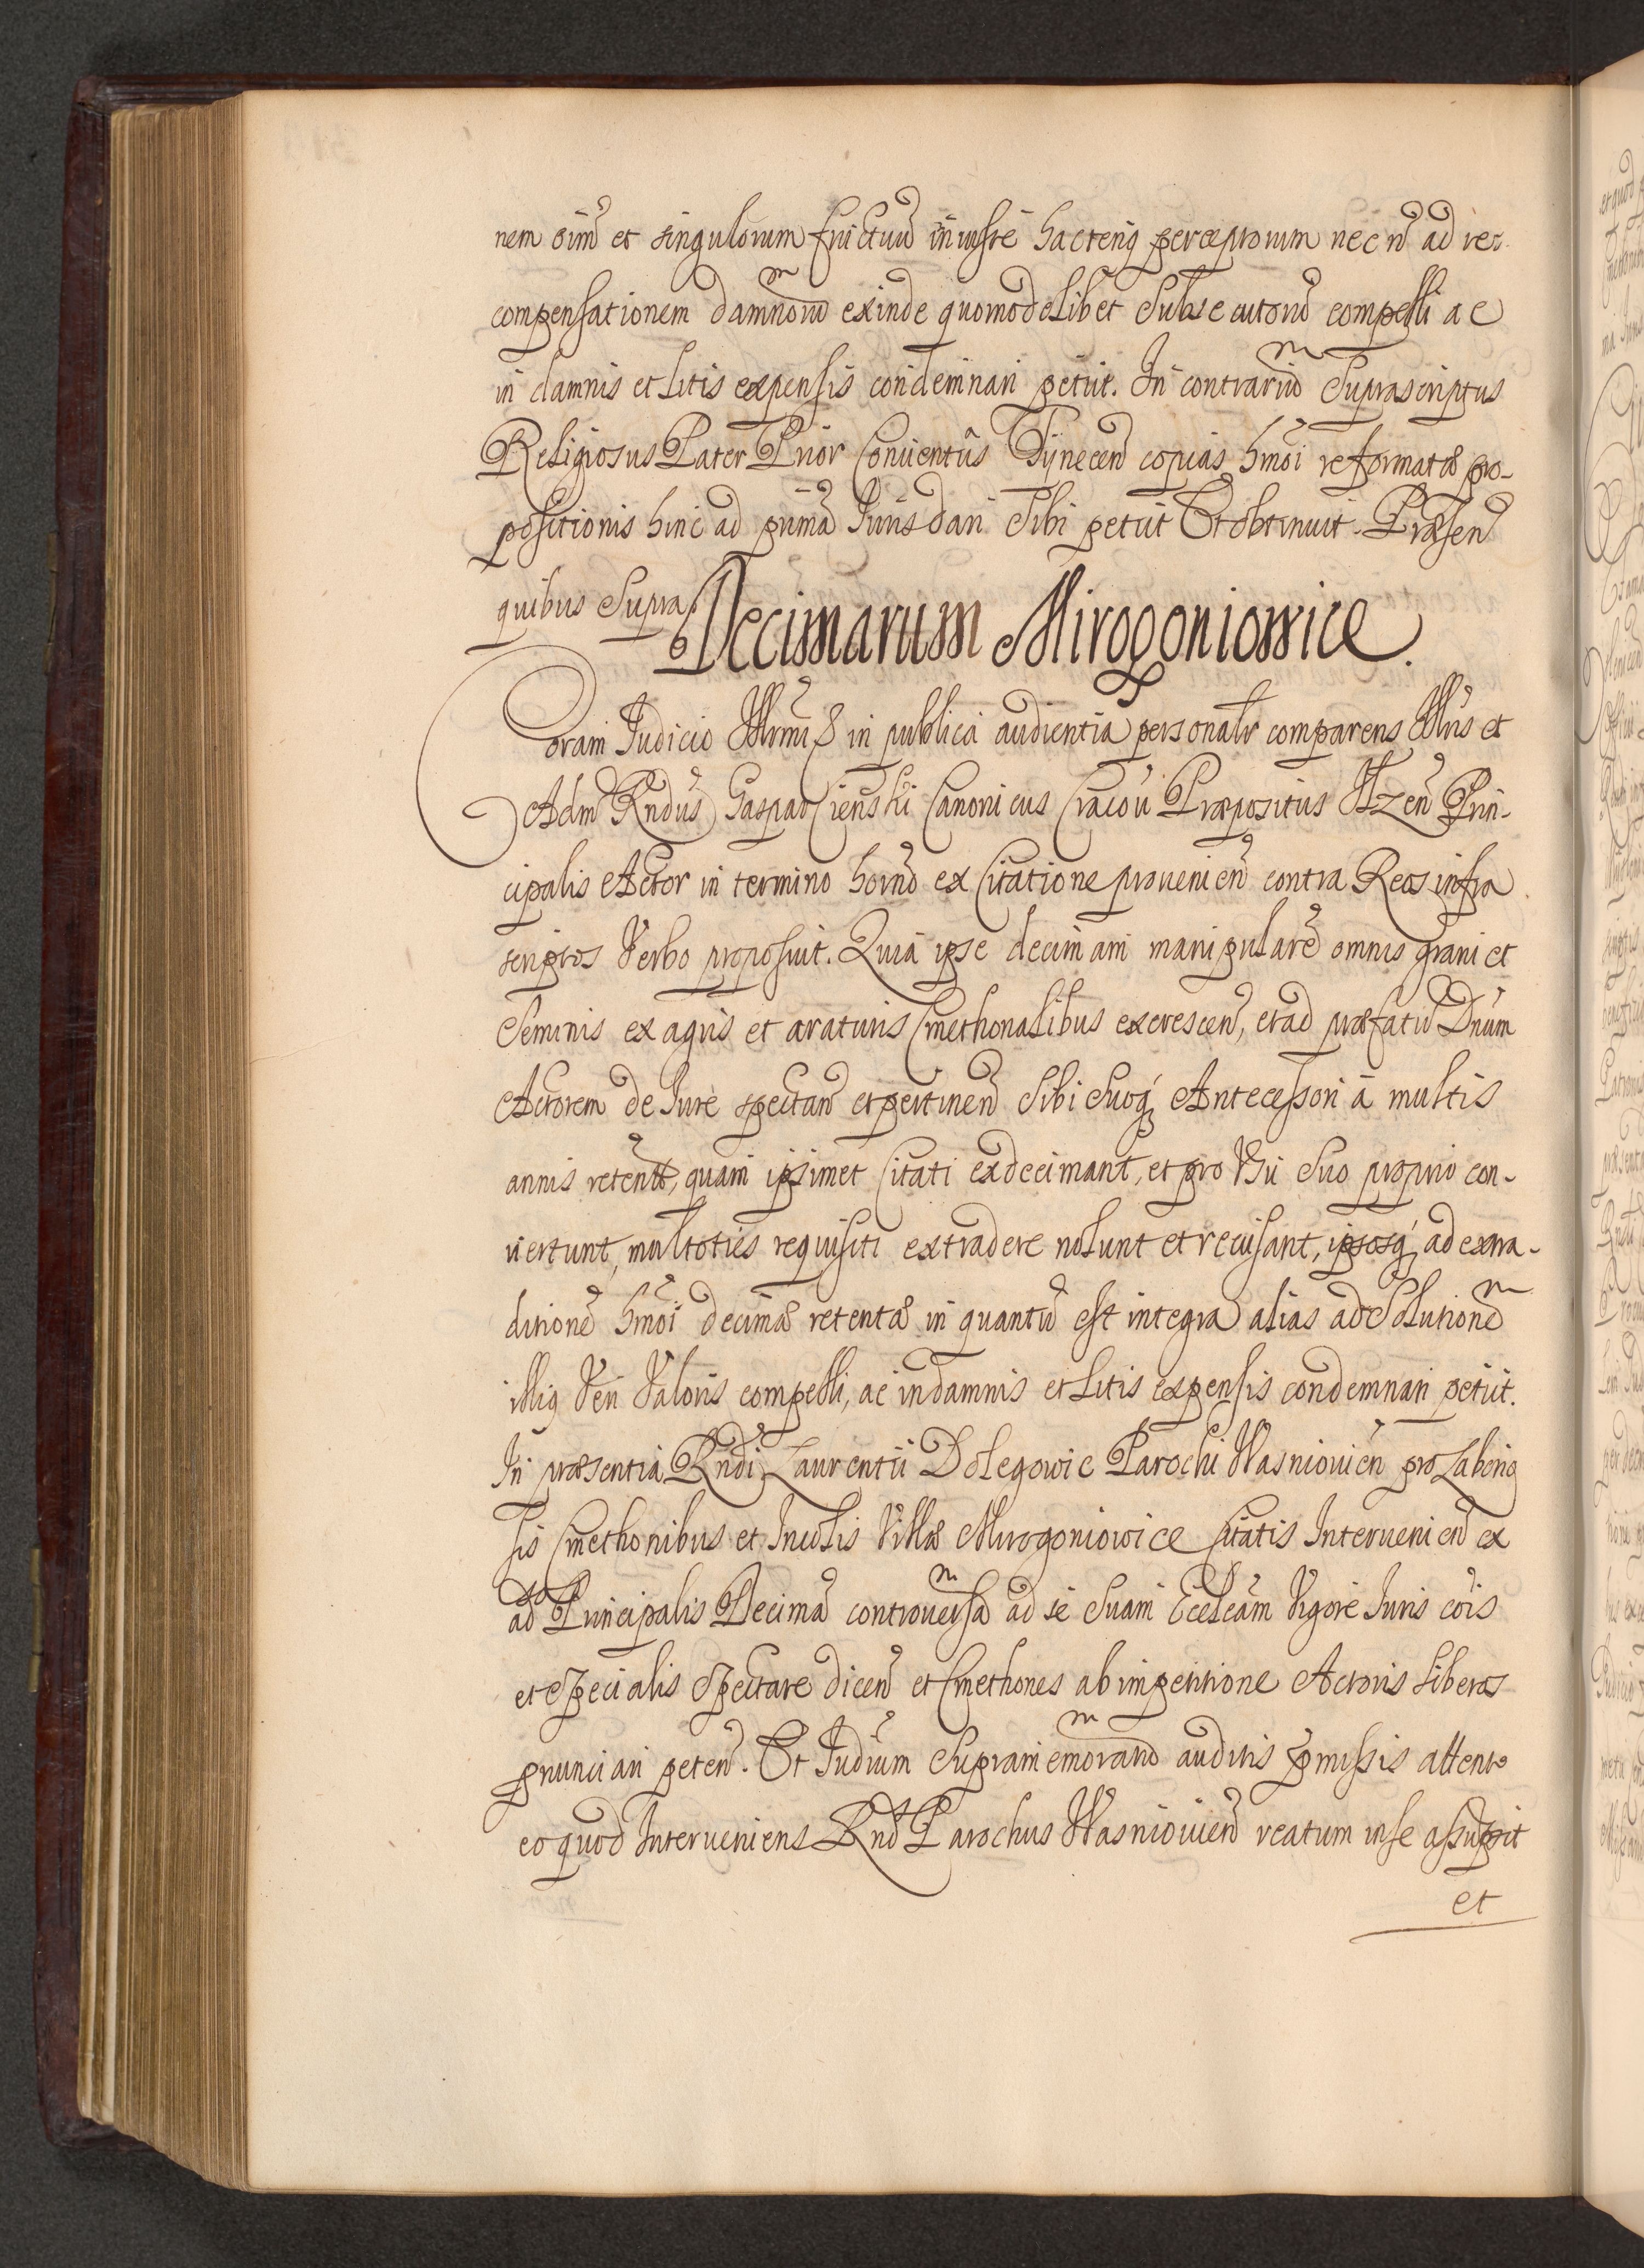 nem oim̃ et singulorum fructuũ iniustè hactenq perceptorum nec ñ ad re-
compensationem damnorũ exinde quomodolibet subsecutorũ compelli ac
in damnis et litis expensis condemnari petiit. In contrariũ Suprascriptus
Religiosus Pater Prior Conuentûs Tynecen̄ copias hm̃oi reformatæ pro-
positionis hinc ad primã Iuris dari Sibi petiit Et obtinuit. Præsen̄
quibus Supra.
Decimarum Mirogoniowice.
Coram Iudicio in publica audientia personalr̃ comparens Illr̃is et
Adm̃ Rndus̃ Gaspar Cienski Canonicus Cracou̇ Præpositus Ilzen̄ Prin-
cipalis Actor in termino horno ex Citatione prouenien̄ contra Reos infra
scriptos Verbo proposuit. Quia ipse decimam manipularẽ omnis grani et
Seminis ex agris et araturis Cmethonalibus excrescen̄, et ad præfatũ Dnũm
Actorem de Iure spectan̄ et pertinen̄ Sibi Suoq́ Antecessori à multis
annis retentã, quam ipsimet Citati exdecimant, et pro Vsu Suo proprio con-
uertunt, multoties requisiti extradere nolunt et recusant, ipsosq́, ad extra-
ditionẽ hm̃oi decimæ retentæ in quantũ est integra alias ad Solutionẽ
illiq Veri Valoris compelli, ac in damnis et Litis expensis condemnari petiit.
In præsentia Rndi Laurentii Dolegowic Parochi Wasniouien̄ pro Laborio
sis Cmethonibus et Incolis Villæ Mirogoniowice Citatis Interuenien̄ ex
ad Principalis Decimã controuersã ad se Suam Ecclẽam Vigore Iuris cõis
et specialis Spectare dicen̄ et Cmethones ab impetitione Actoris liberos
pnunciari peten̄. Et Iudium Supramemoratũ auditis pmissis attento
eo quod Interueniens Rnd Parochus Wasniouien̄ reatum in se assũpsit
et